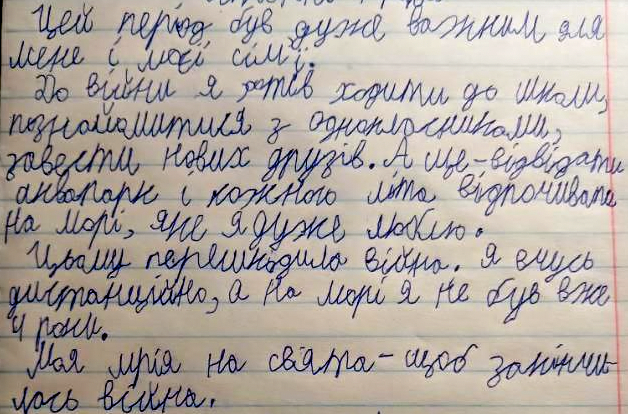 Цей період був дуже важким для
мене і моєї сім'ї.
До війни я хотів ходити до школи,
познайомитися з однокласниками,
завести нових друзів. А ще - відвідати
аквапарк і кожного літа відпочивати
на морі, яке я дуже люблю.
Цьому перешкодила війна. Я вчусь
дистанційно, а на морі я не був вже
4 роки.
Моя мрія на свята - щоб закінчи-
лась війна.